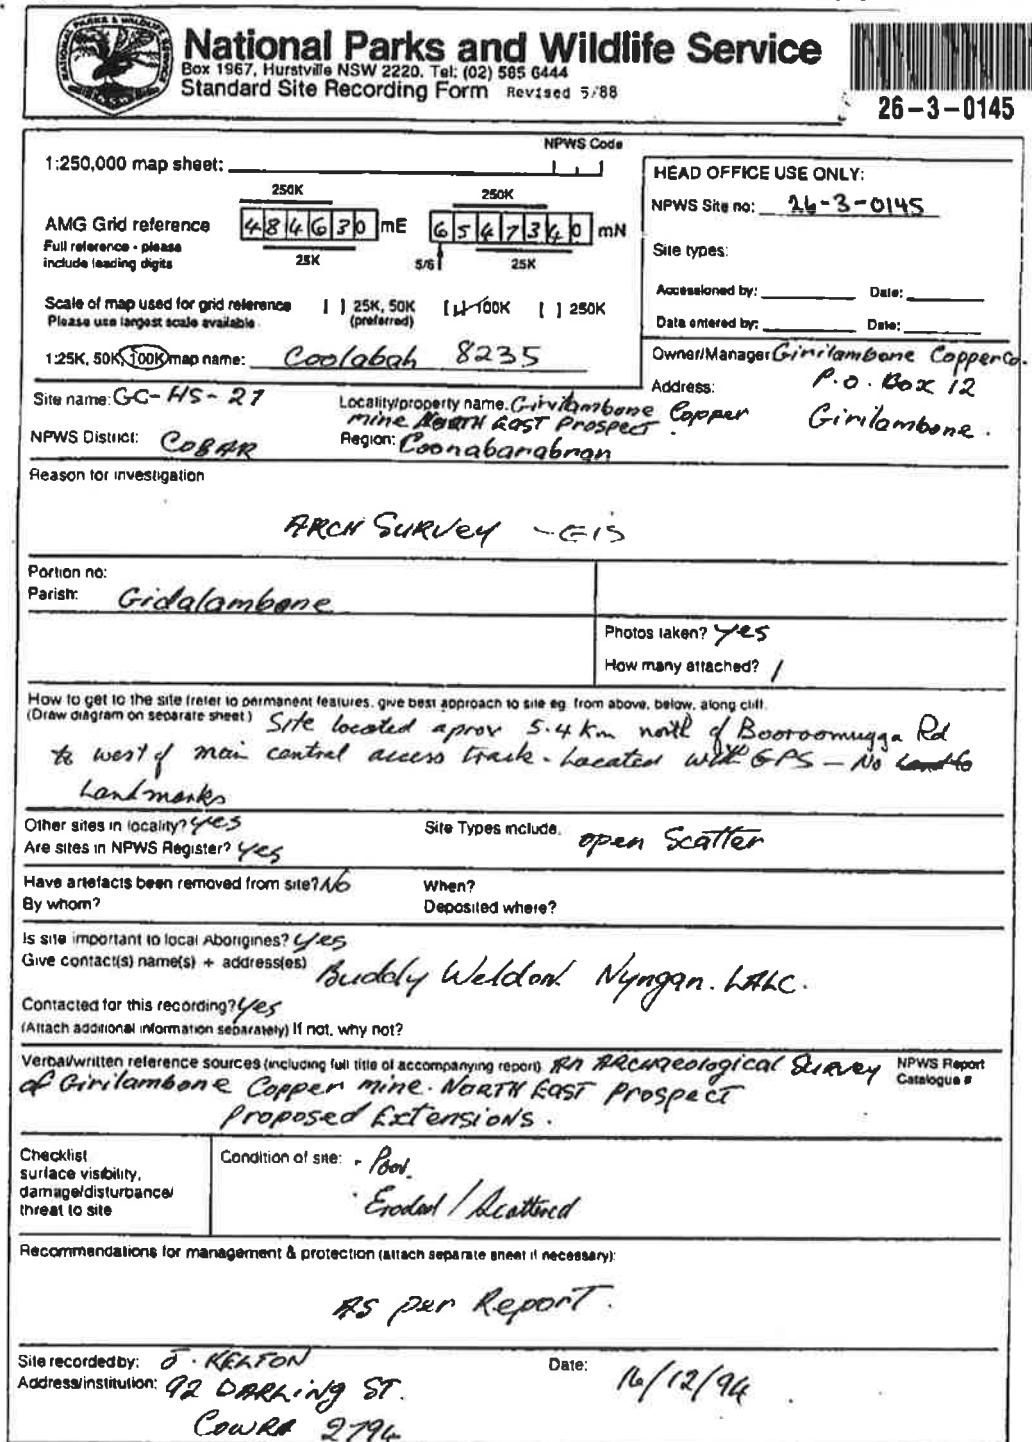 NATIONAL PARKS & WILDLIFE SERVICE
N.S.W.
National Parks and Wildlife Service
Box 1967, Hurstville NSW 2220. Tel: (02) 585 6444
Standard Site Recording Form Revised 5/88
26-3-0145
NPWS Code
1:250,000 map sheet:
HEAD OFFICE USE ONLY:
NPWS Site no: 26-3-0145
250K 250K
AMG Grid reference 484630 mE 6547340 mN
Full reference - please
include leading digits
25K 5/6 25K
Site types:
Accessioned by: Date:
Data entered by: Date:
Scale of map used for grid reference [ ] 25K, 50K [ ] 100K [ ] 250K
Please use largest scale available (preferred)
1:25K, 50K, 100K map name: Coolabah 8235
Owner/Manager Girilambone Copper Co.
Address: P.O. Box 12
Girilambone.
Site name: GC-HS-27
Locality/property name: Girilambone Copper
mine NORTH EAST Prospect.
NPWS District: COBAR
Region: Coonabarabran
Reason for investigation
ARCH SURVEY - EIS
Portion no:
Parish: Gidalambone
Photos taken? Yes
How many attached? 1
How to get to the site (refer to permanent features, give best approach to site eg. from above, below, along cliff.
(Draw diagram on separate sheet) Site located aprox 5.4 Km north of Booroomugga Rd
to west of main central access track. Located with GPS - No
Landmarks
Other sites in locality? Yes
Site Types include. open Scatter
Are sites in NPWS Register? Yes
Have artefacts been removed from site? No When?
By whom? Deposited where?
Is site important to local Aborigines? Yes
Give contact(s) name(s) + address(es) Buddy Weldon. Nyngan. LALC.
Contacted for this recording? Yes
(Attach additional information separately) If not, why not?
Verbal/written reference sources (including full title of accompanying report) An ARCHAEological Survey
NPWS Report
Catalogue #
of Girilambone Copper mine. NORTH EAST Prospect
Proposed Extensions.
Checklist
surface visibility,
damage/disturbance/
threat to site
Condition of site: - Poor.
Eroded / Scattered
Recommendations for management & protection (attach separate sheet if necessary):
As per Report.
Site recorded by: J. KELTON
Date: 16/12/94
Address/institution: 92 DARLING ST.
COWRA 2794